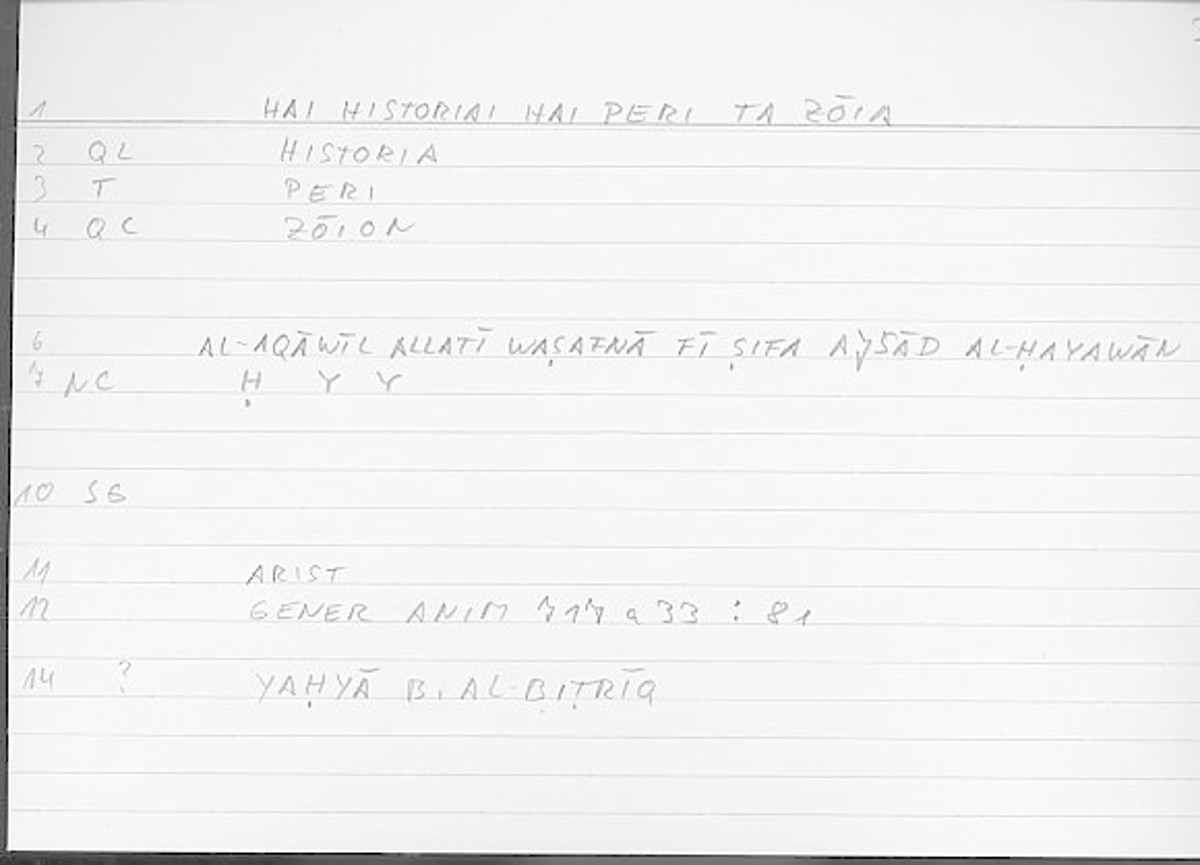 1 HAI HISTORIAI HAI PERI TA ZŌIA
2 QL HISTORIA
3 T PERI
4 QC ZŌION
6 AL-AQĀWĪL ALLATĪ WAṢAFNĀ FĪ ṢIFA AǦSĀD AL-ḤAYAWĀN
7 NC Ḥ Y Y
10 SG
11 ARIST
12 GENER ANIM 717 a 33 : 81
14 ? YAḤYĀ B. AL-BIṬRĪQ